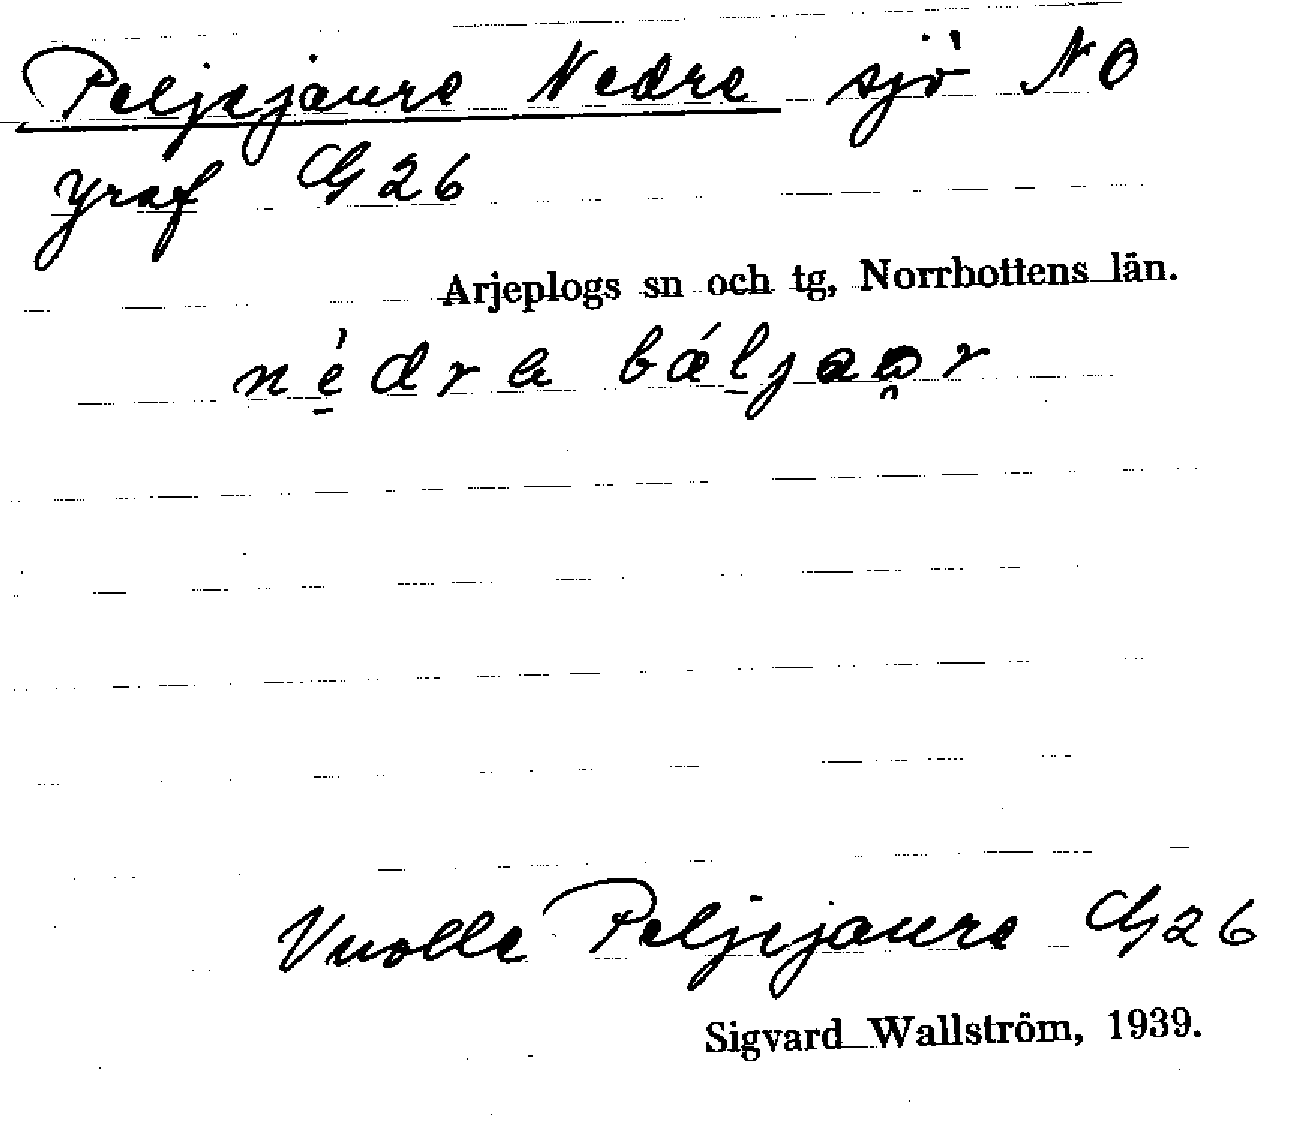 Peljejaure Nedre sjö NO
yraf G26
Arjeplogs sn och tg, Norrbottens län.
Vuolle Peljejaure G26
Sigvard Wallström, 1939.